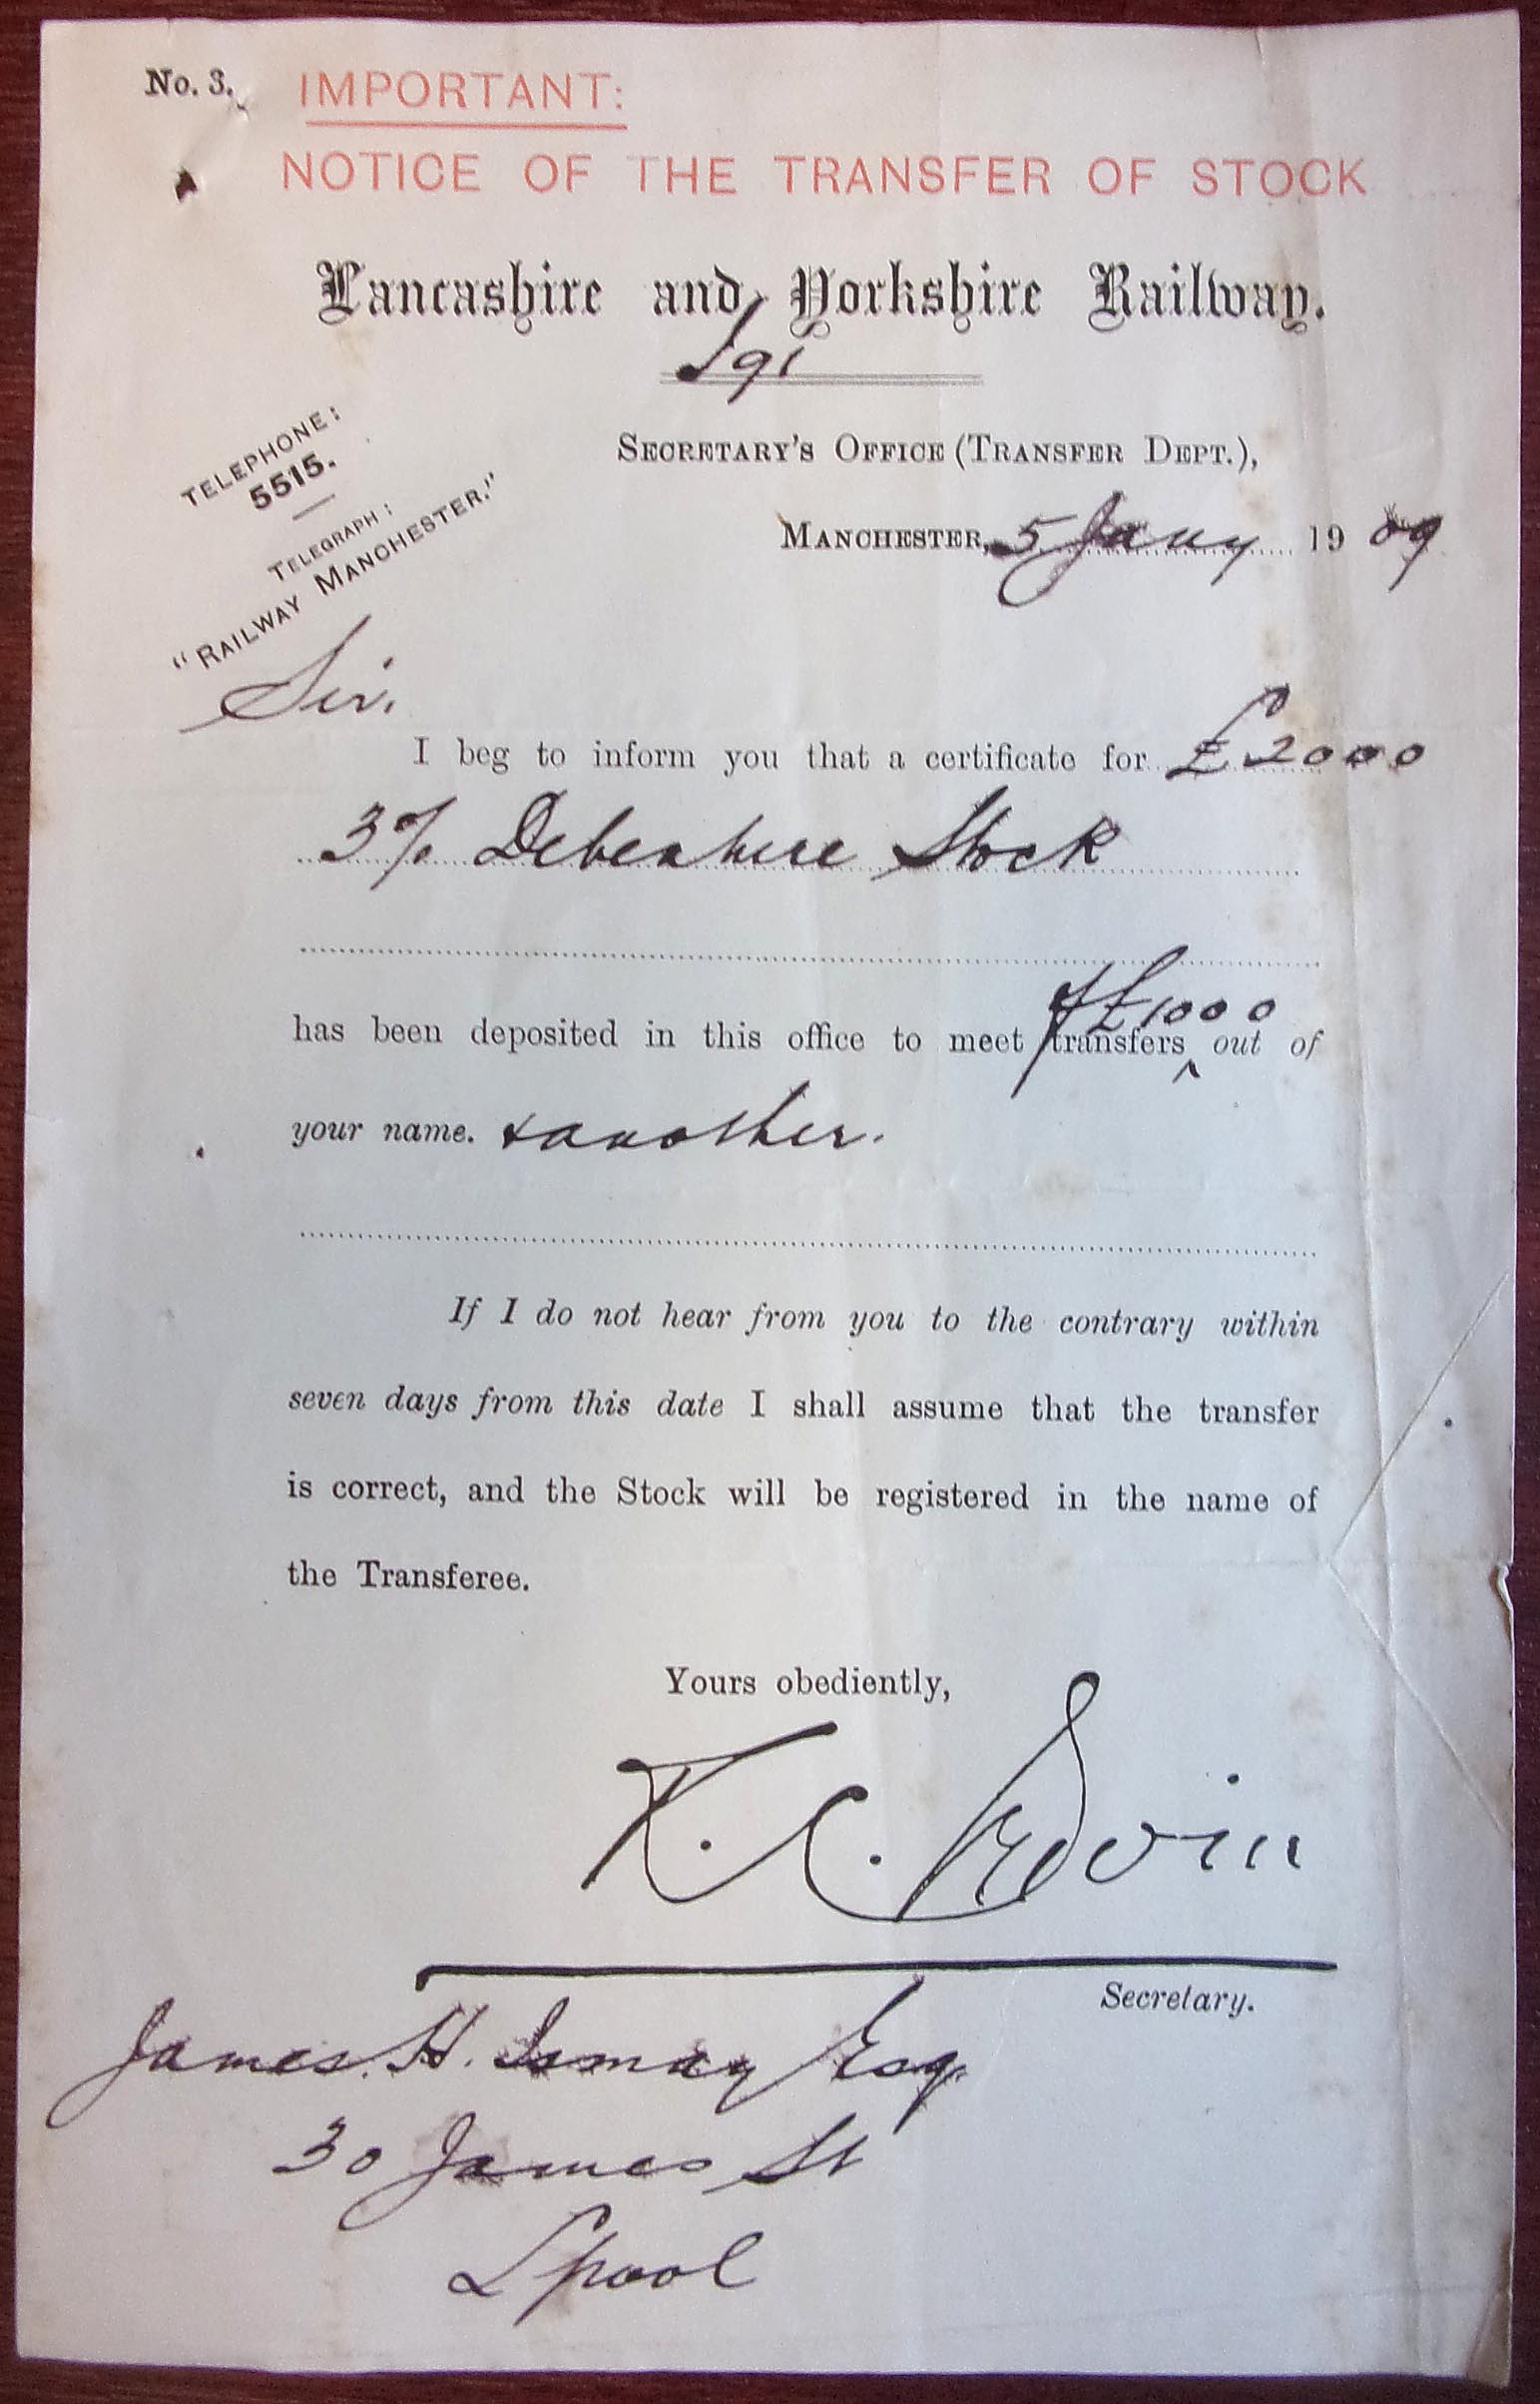 No. 3.
IMPORTANT:
NOTICE OF THE TRANSFER OF STOCK
Lancashire and Yorkshire Railway.
91
TELEPHONE:
5515.
TELEGRAPH:
"RAILWAY MANCHESTER."
SECRETARY'S OFFICE (TRANSFER DEPT.),
MANCHESTER, 5 Jany 1909
Sir,
I beg to inform you that a certificate for £2000
3% Debenture Stock
of £1000
has been deposited in this office to meet transfers ^ out of
your name. & another.
If I do not hear from you to the contrary within
seven days from this date I shall assume that the transfer
is correct, and the Stock will be registered in the name of
the Transferee.
Yours obediently,
R. C. Irwin
Secretary.
James H. Ismay Esq.
30 James St
Lpool